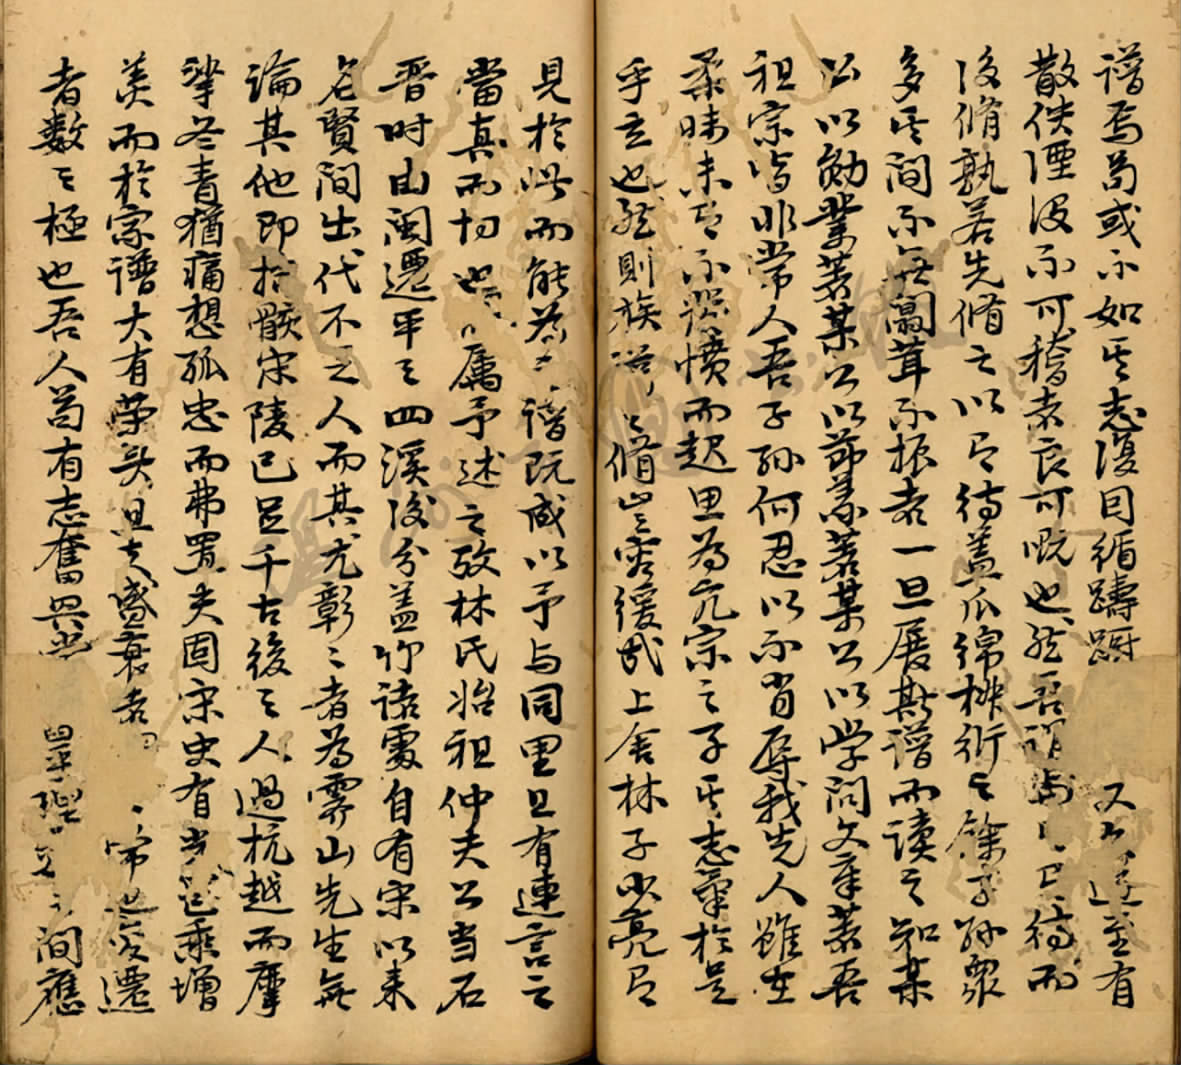 譜焉苟或不如其志復因循躊躇又遷至有
散佚湮沒不可稽索良可嘅也然吾得而
後脩孰若先脩之以有待蓋瓜綿椒衍之餘子孫眾
多其間不無闒茸不振者一旦展斯譜而讀之知某
公以勛業著某公以節義著某公以學問文章著吾
祖宗皆非常人吾子孫何忍以不肖辱我先人雖在
柔昧未有不憤而起思為亢宗之子其志篤於是
乎立也然則族譜之脩豈容緩哉上舍林子必亮有
見於此而能為譜既成以予与同里且有連言之
當真而切也属予述之攷林氏始祖仲夫公当石
晉時由閩遷平之四溪後分蓋竹諸處自有宋以来
名賢間出代不乏人而其尤彰彰者為霽山先生無
論其他即拾骸宋陵已足千古後之人過杭越而摩
挲冬青猶痛想孤忠而弗置矣固宋史有光乘增
美而於家譜大有榮矣且夫盛衰者常也变遷
者数之極也吾人苟有志奮興間應